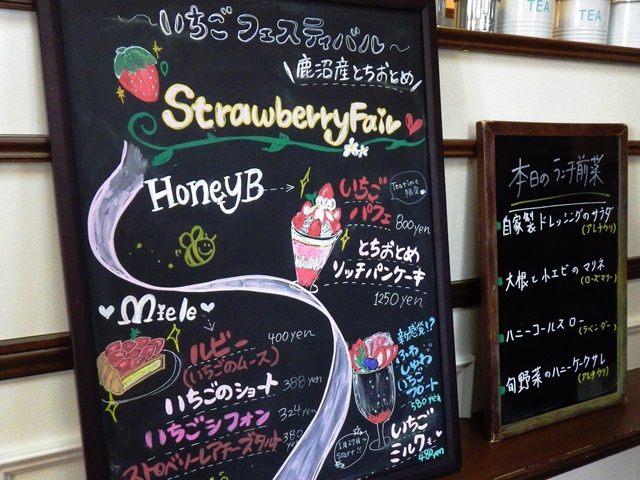 TEA
TEA
いちごフェスティバル〜
鹿沼産とちおとめ
StrawberryFair
HoneyB
いちご
パフェ
Teatime
限定
800yen
とちおとめ
リッチパンケーキ
1250yen
Miele
ルビー
400yen
(いちごのムース)
いちごのショート
388yen
いちごシフォン
324yen
ストロベリーレアチーズタルト
380
新感覚!?
ふわ
しゅわ
いちご
フロート
580yen
いちご
ミルクも
480yen
1月27日〜
Start!!
本日のランチ前菜
自家製ドレッシングのサラダ
(アレチウリ)
大根と小エビのマリネ
(ローズマリー)
ハニーコールスロー
(ラベンダー)
旬野菜のハニーケークサレ
(アレチウリ)